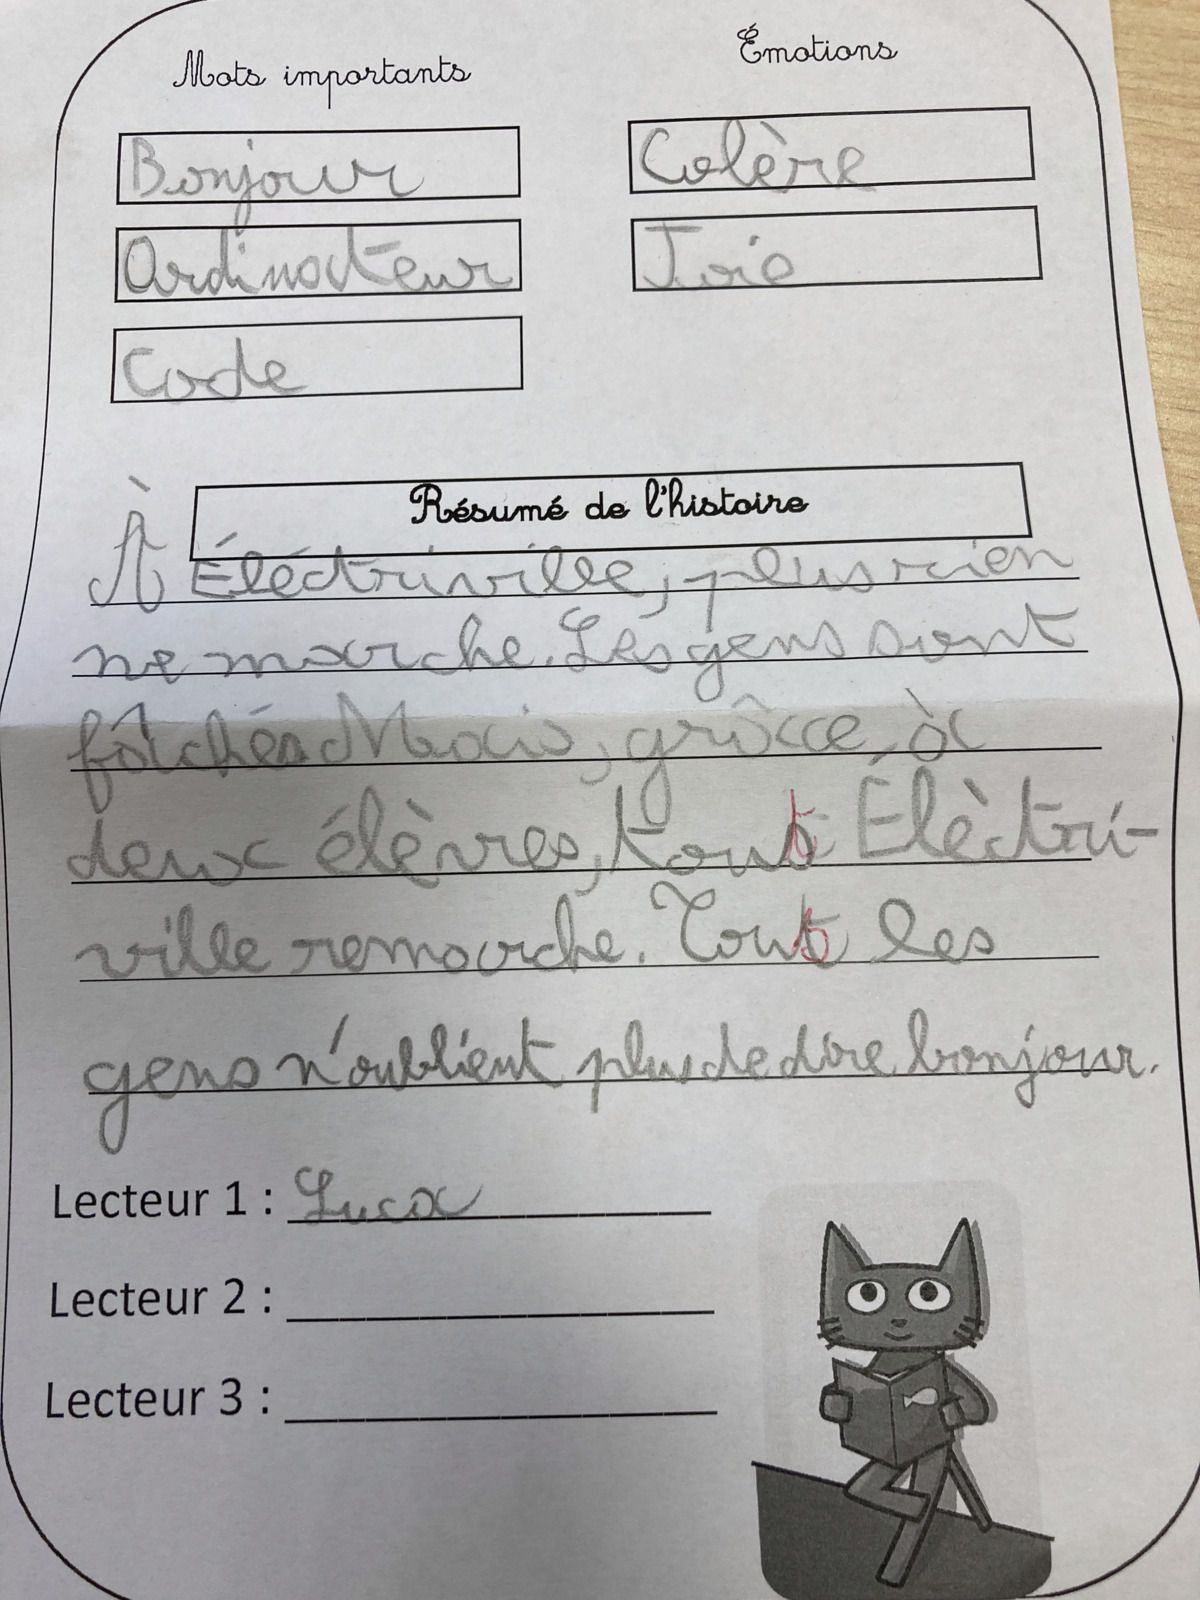 Mots importants
Émotions
Bonjour
Colère
Ordinateur
Joie
Code
Résumé de l'histoire
À Éléctriville, plus rien
ne marche. Les gens sont
fâchés Mais, grâce, à
deux élèves, tout Élèctri-
ville remarche. Tous les
gens n'oublient plus de dire bonjour.
Lecteur 1 : Luca
Lecteur 2 :
Lecteur 3 :